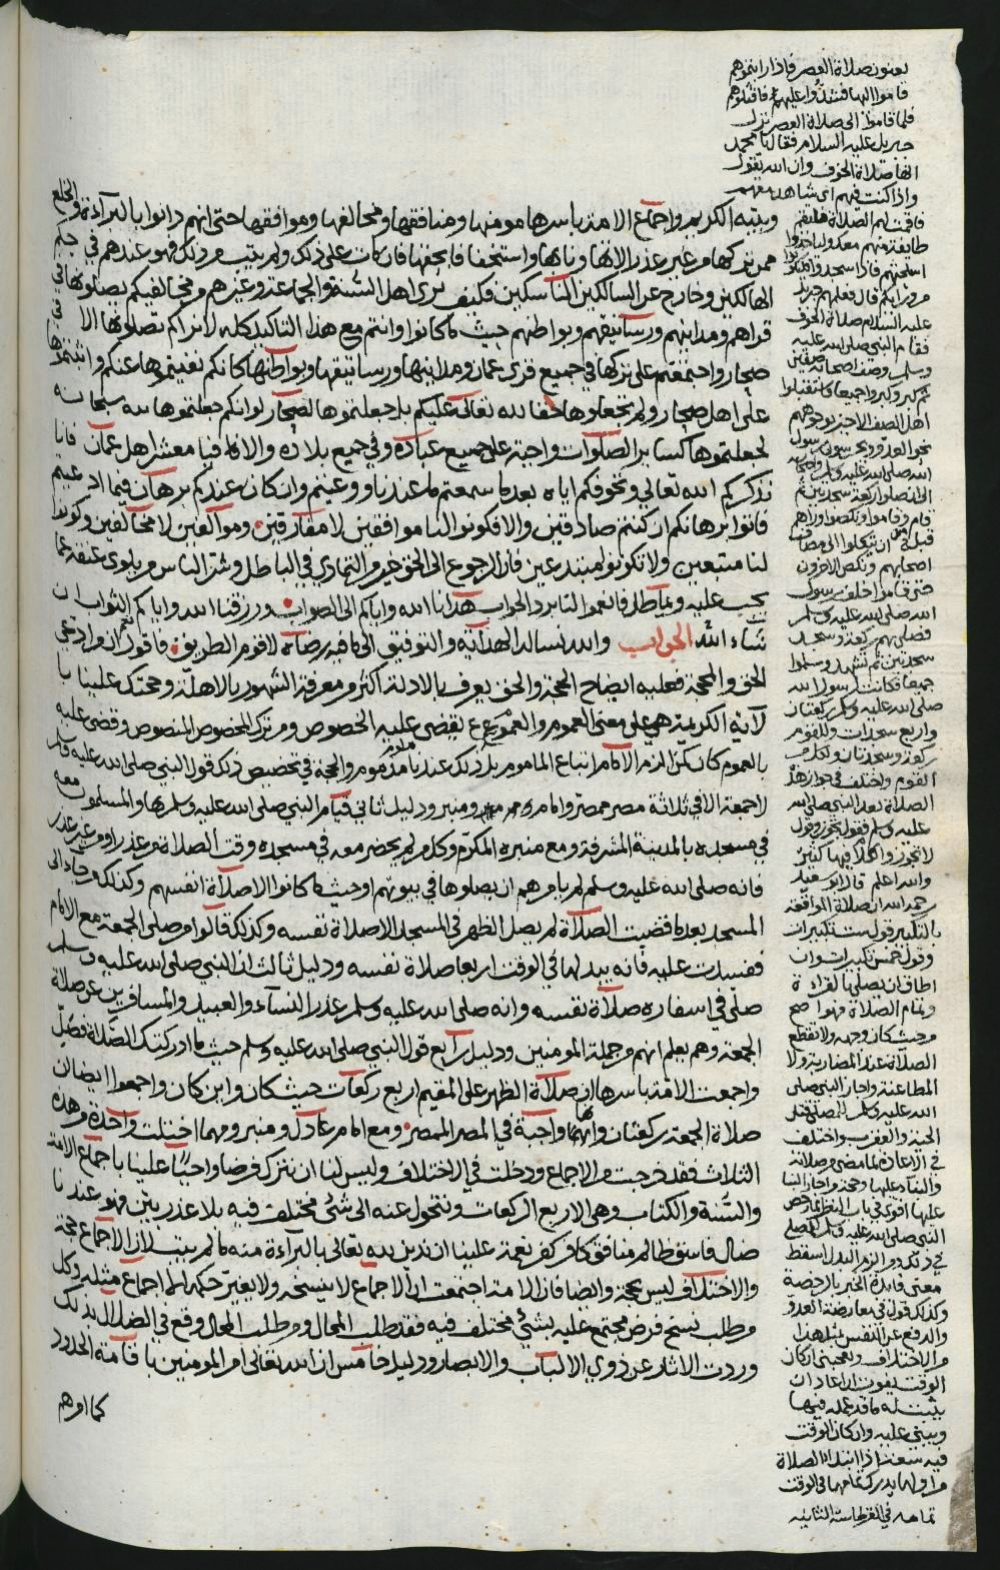 ونبيه الكريم واجماع الامة باسرها مومنها ومنافقها ومخالفها وموافقها حتى انهم دانوا بالبرآءة والخلع
ممن تركها من غير عذر الانها وبانها واستخفافا بحقها فان مات على ذلك ولم يتب من ذلك فهو عندهم في حكم
الهالكين وخارج عن السالكين الناسكين فكيف نرى اهل السنة والجماعة وغيرهم ومخالفيكم يصلونها في
قراهم ومداينهم ورساتيقهم وبواطنهم حيث ما كانوا وانتم مع هذا التاكيد كله لا نراكم تصلونها الا في
صحار واجتمعتم على تركها في جميع قرى عمان ومداينها ورساتيقها وبواطنها كانكم نفيتموها عنكم واثبتموها
على اهل صحار ولم تجعلوها حقا لله تعالى عليكم بل جعلتموها لصحار لو انكم جعلتموها لله سبحانه
لجعلتموها كساير الصلوات واجبة على جميع عباده وفي جميع بلاده والا فافتونا معشر اهل عمان فانا
نذكركم الله تعالى ونخوفكم اياه بعد ما سمعتم ما عندنا ووعيتم وان كان عندكم برهان فيما ادعيتم
فاتوا برهانكم ان كنتم صادقين والا فكونوا لنا موافقين لا مفارقين وموالفين لا مخالفين وكونوا
لنا متبعين ولا تكونوا مبتدعين فان الرجوع الى الحق خير من التمادي في الباطل وشر الناس من يلوي عنقه عما
يجب عليه ويماطل فانعموا لنا برد الجواب هدانا الله واياكم الى الصواب ورزقنا الله واياكم الثواب ان
شاء الله الجواب والله نساله الهداية والتوفيق الى ما فيه رضاه لاقوم الطريق فاقول ان من ادعى
الحق والمحجة فعليه ايضاح الحجة والحق يعرف بالادلة اكثر من معرفة الشهور بالاهلة ومحجتك علينا با
لاية الكريمة هي على معنى العموم والعموم يقضى عليه الخصوص ومن ترك المخصوص المنصوص وقضى عليه
بالعموم كان كمن الزم الامام اتباع الماموم بل ذلك عندنا مذموم والحجة في تخصيص ذلك قول النبي صلى الله عليه وسلم
لا جمعة الا في ثلاثة مصر ممصر وامام ومنبر ودليل ثاني قيام النبي صلى الله عليه وسلم بها والمسلمون معه
في مسجده بالمدينة المشرفة ومع منبره المكرم وكل من لم يحضر معه في مسجده وقت الصلاة من عذر او من غير عذر
فانه صلى الله عليه وسلم لم يامرهم ان يصلوها في بيوتهم او حيث ما كانوا الا صلاة انفسهم وكذلك من جاء الى
المسجد بعد ما قضيت الصلاة لم يصل الظهر في المسجد الا صلاة نفسه وكذلك قالوا من صلى الجمعة مع الامام
ففسدت عليه فانه يبدلها في الوقت اربعا صلاة نفسه ودليل ثالث ان النبي صلى الله عليه وسلم
صلى في اسفاره صلاة نفسه وانه صلى الله عليه وسلم عذر النسآء والعبيد والمسافرين عن صلاة
الجمعة وهم يعلم انهم من جملة المومنين ودليل رابع قول النبي صلى الله عليه وسلم حيث ما ادركتك الصلاة فصل
واجمعت الامة باسرها ان صلاة الظهر على المقيم اربع ركعات حيث كان واين كان واجمعوا ايضا ان
صلاة الجمعة ركعتان وانها واجبة في المصر الممصر ومع امام عادل ومنبر ومهما اختلت واحدة من هذه
الثلاث فقد خرجت من الاجماع ودخلت في الاختلاف وليس لنا ان نترك فرضا واجبا علينا باجماع الامة
والسنة والكتاب وهي الاربع الركعات ونتحول عنه الى شئ مختلف فيه بلا عذر يتبين فهو عندنا
ضال فاسق ظالم منافق كافر كفر نعمة علينا ان ندين لله تعالى بالبرآءة منه ما لم يتب لان الاجماع حجة
والاختلاف ليس بحجة وايضا فان الامة اجتمعت ان الاجماع لا ينسخه ولا يغير حكمه الا اجماع مثله وكل
من طلب نسخ فرض مجتمع عليه بشئ مختلف فيه فقد طلب المحال ومن طلب المحال وقع في الضلال بذلك
وردت الاثار عن ذوي الالباب والابصار ودليل خامس ان الله تعالى امر المومنين باقامة الحدود
كما امرهم
يعنون صلاة العصر فاذا رايتموهم
قاموا اليها فشدوا عليهم فاقتلوهم
فلما قاموا الى صلاة العصر نزل
جبريل عليه السلام فقال يا محمد
انها صلاة الخوف وان الله يقول
واذا كنت فيهم اي شاهدا معهم
فاقمت لهم الصلاة فلتقم
طايفة منهم معك ولياخذوا
اسلحتهم فاذا سجدوا فليكونوا
من ورايكم قال فعلمهم جبريل
عليه السلام صلاة الخوف
فقام النبي صلى الله عليه
وسلم وصف اصحابه صفين
ثم كبر وكبروا جميعا
اهل الصف الاخير بوجوههم
نحو العدو
سجدتين ثم تشهد وسلموا
جميعا فكانت لرسول الله
صلى الله عليه وسلم ركعتان
واربع سجدات وللقوم
ركعة وسجدتان
القوم واختلف في جواز هذه
الصلاة بعد النبي صلى الله
عليه وسلم فقول تجوز وقول
لا تجوز والكلام فيها كثير
والله اعلم قال ابو سعيد
رحمه الله ان صلاة المواقعة
بالتكبير قول ست تكبيرات
وقول خمس تكبيرات وان
اطاق ان يصلي بالقراءة
وتمام الصلاة فهو اصح
من حيث كان وجهه ولا تقطع
الصلاة عند المضاربة ولا
المطاعنة واجاز النبي صلى
الله عليه وسلم للمصلي قتل
الحية والعقرب واختلف
في الاعادة لما مضى من صلاته
والبناء عليها
النبي صلى الله عليه وسلم للمصلي
في ذلك ومن الزم البدل اسقط
معنى فايدة الخبر بالرخصة
وكذلك قوله في معارضة العدو
والدفع عن النفس مثل هذا
من الاختلاف ويعجبني ان كان
الوقت يفوت ان اعاد ان
يثبت له ما قد عمله فيها
ويبني عليه وان كان الوقت
فيه سعة اذا ابتدا الصلاة
من اولها يدرك تمامها في الوقت
تمامه في القرطاسة الثانية